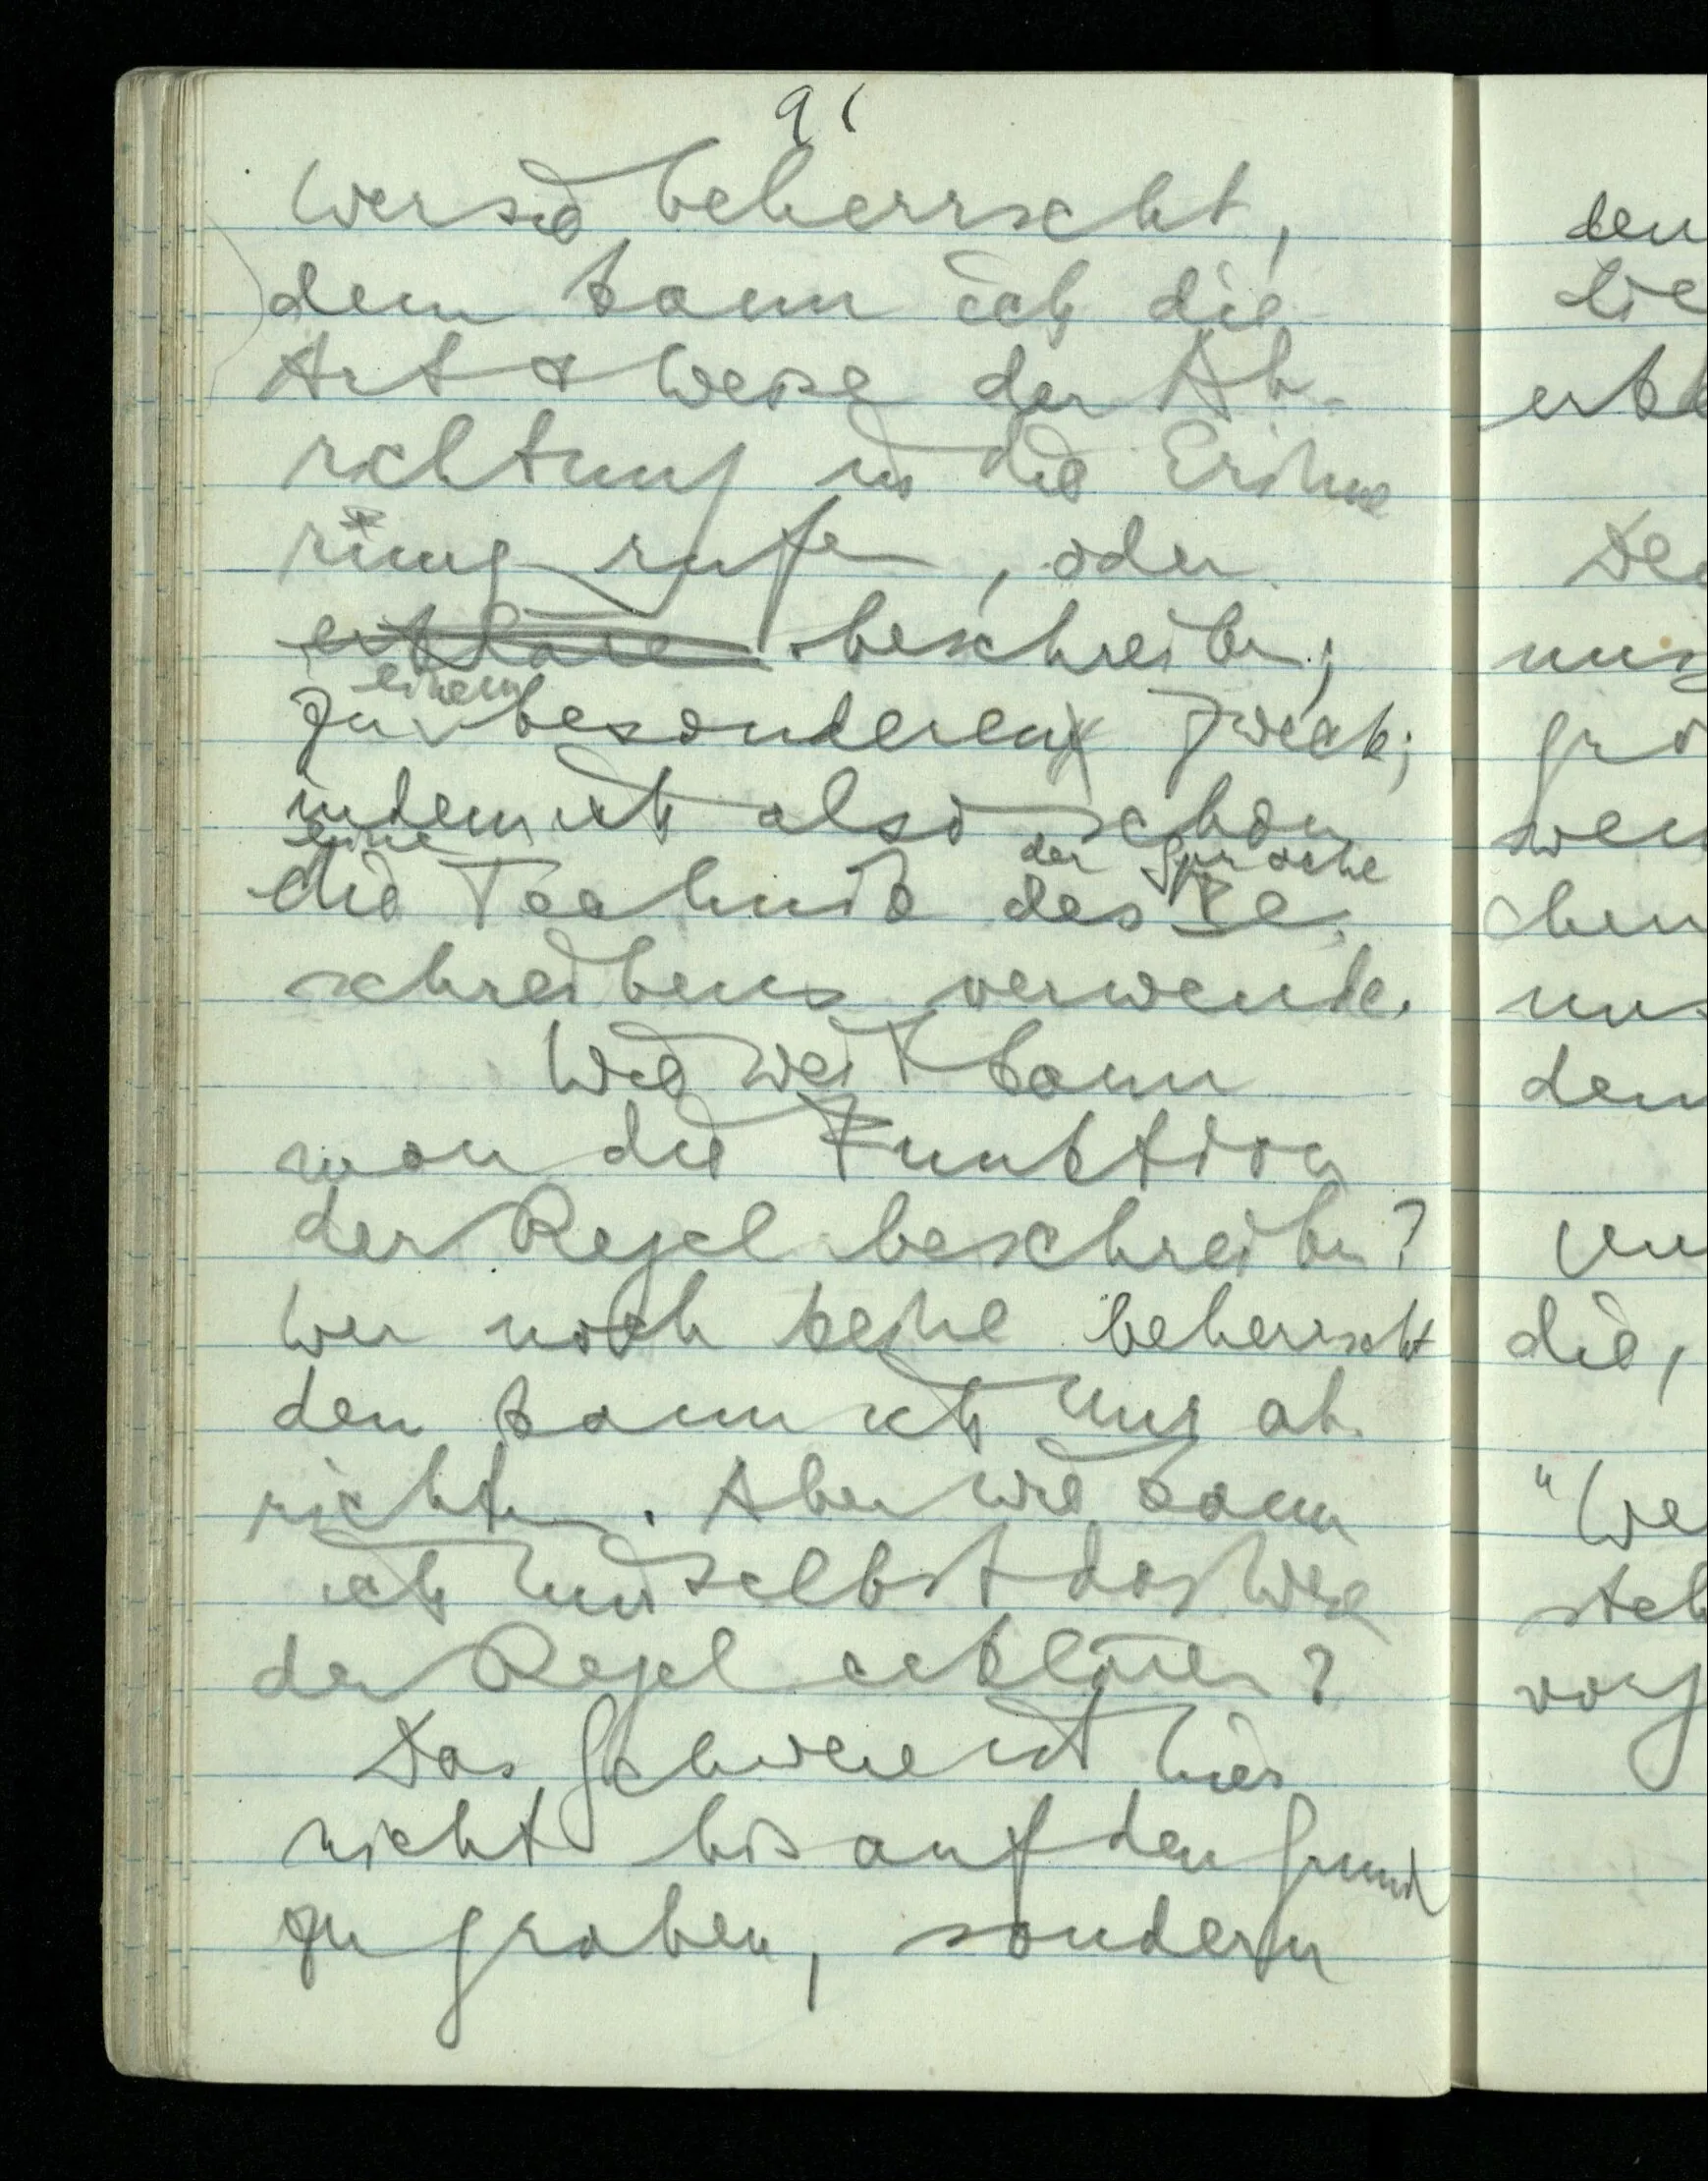 91
Wer sie beherrscht,
dem kann ich die
Art & Weise der Ab-
richtung in die Erinne
rung rufen, oder
erkläre beschreiben;
einem
zu besonderen Zweck;
indem ich also schon
eine
der Sprache
die Technik des Be-
schreibens verwende.
Wie weit kann
man die Funktion
der Regel beschreiben?
Wer noch keine beherrscht
den kann ich nur ab-
richten. Aber wie kann
ich mir selbst das Wese
der Regel erklären?
Das Schwere ist hier
nicht bis auf den Grund
zu graben, sondern
den
die,
"We